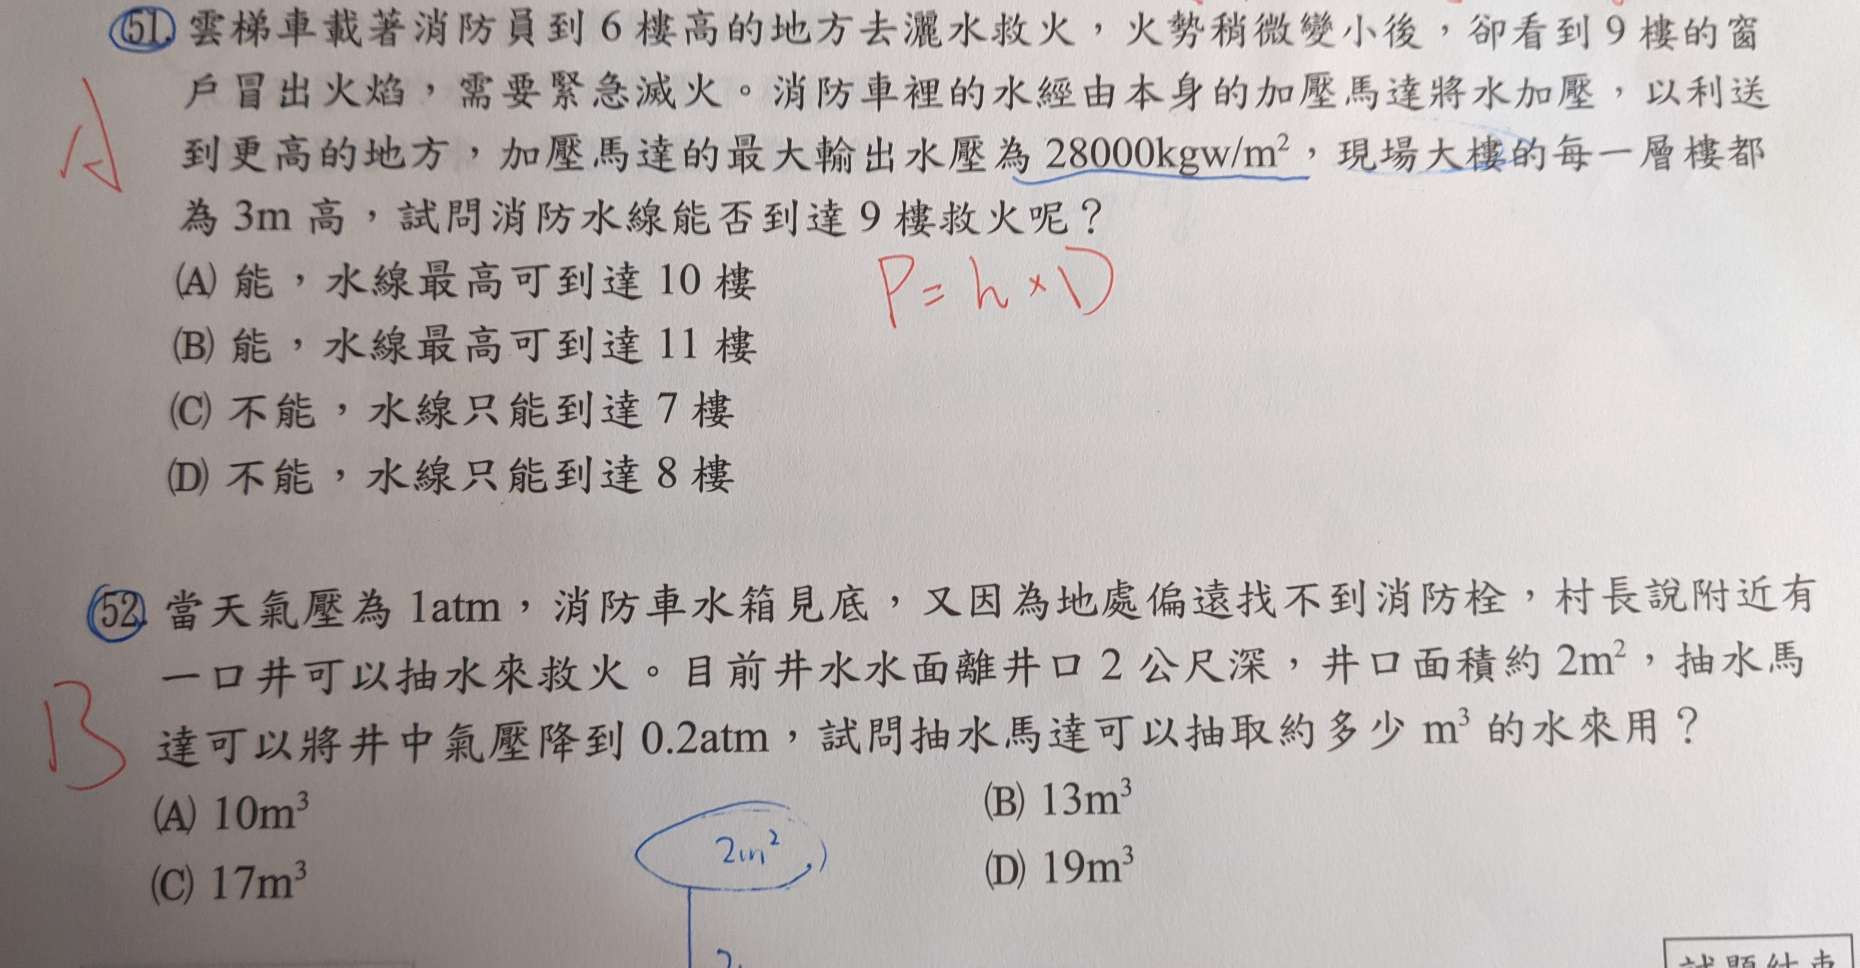 51. 雲梯車載著消防員到 6 樓高的地方去灑水救火，火勢稍微變小後，卻看到 9 樓的窗
戶冒出火焰，需要緊急滅火。消防車裡的水經由本身的加壓馬達將水加壓，以利送
到更高的地方，加壓馬達的最大輸出水壓為 28000kgw/m²，現場大樓的每一層樓都
為 3m 高，試問消防水線能否到達 9 樓救火呢？
A
(A) 能，水線最高可到達 10 樓
P=h×D
(B) 能，水線最高可到達 11 樓
(C) 不能，水線只能到達 7 樓
(D) 不能，水線只能到達 8 樓
52. 當天氣壓為 1atm，消防車水箱見底，又因為地處偏遠找不到消防栓，村長說附近有
一口井可以抽水來救火。目前井水水面離井口 2 公尺深，井口面積約 2m²，抽水馬
達可以將井中氣壓降到 0.2atm，試問抽水馬達可以抽取約多少 m³ 的水來用？
B
(A) 10m³
(B) 13m³
(C) 17m³
(D) 19m³
2m²